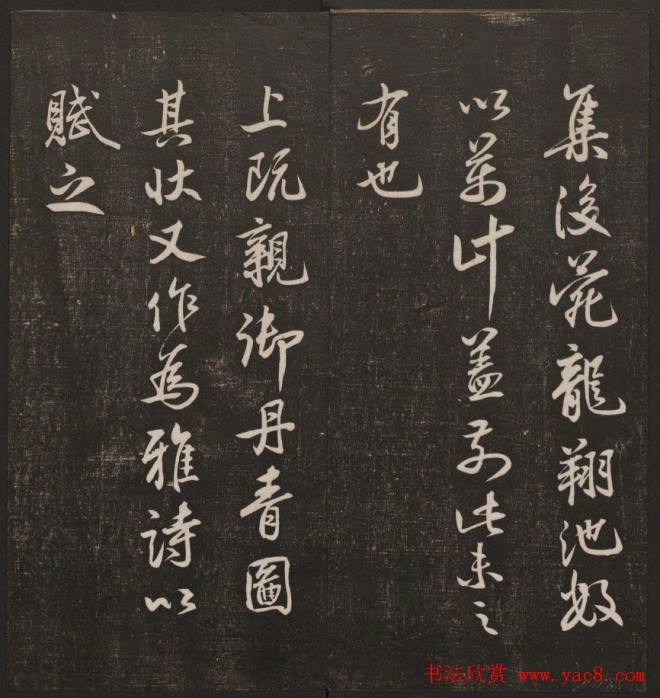 集後苑龍翔池數
以萬計蓋前此未之
有也
上既親御丹青圖
其狀又作為雅詩以
賦之
书法欣赏 www.yac8.com